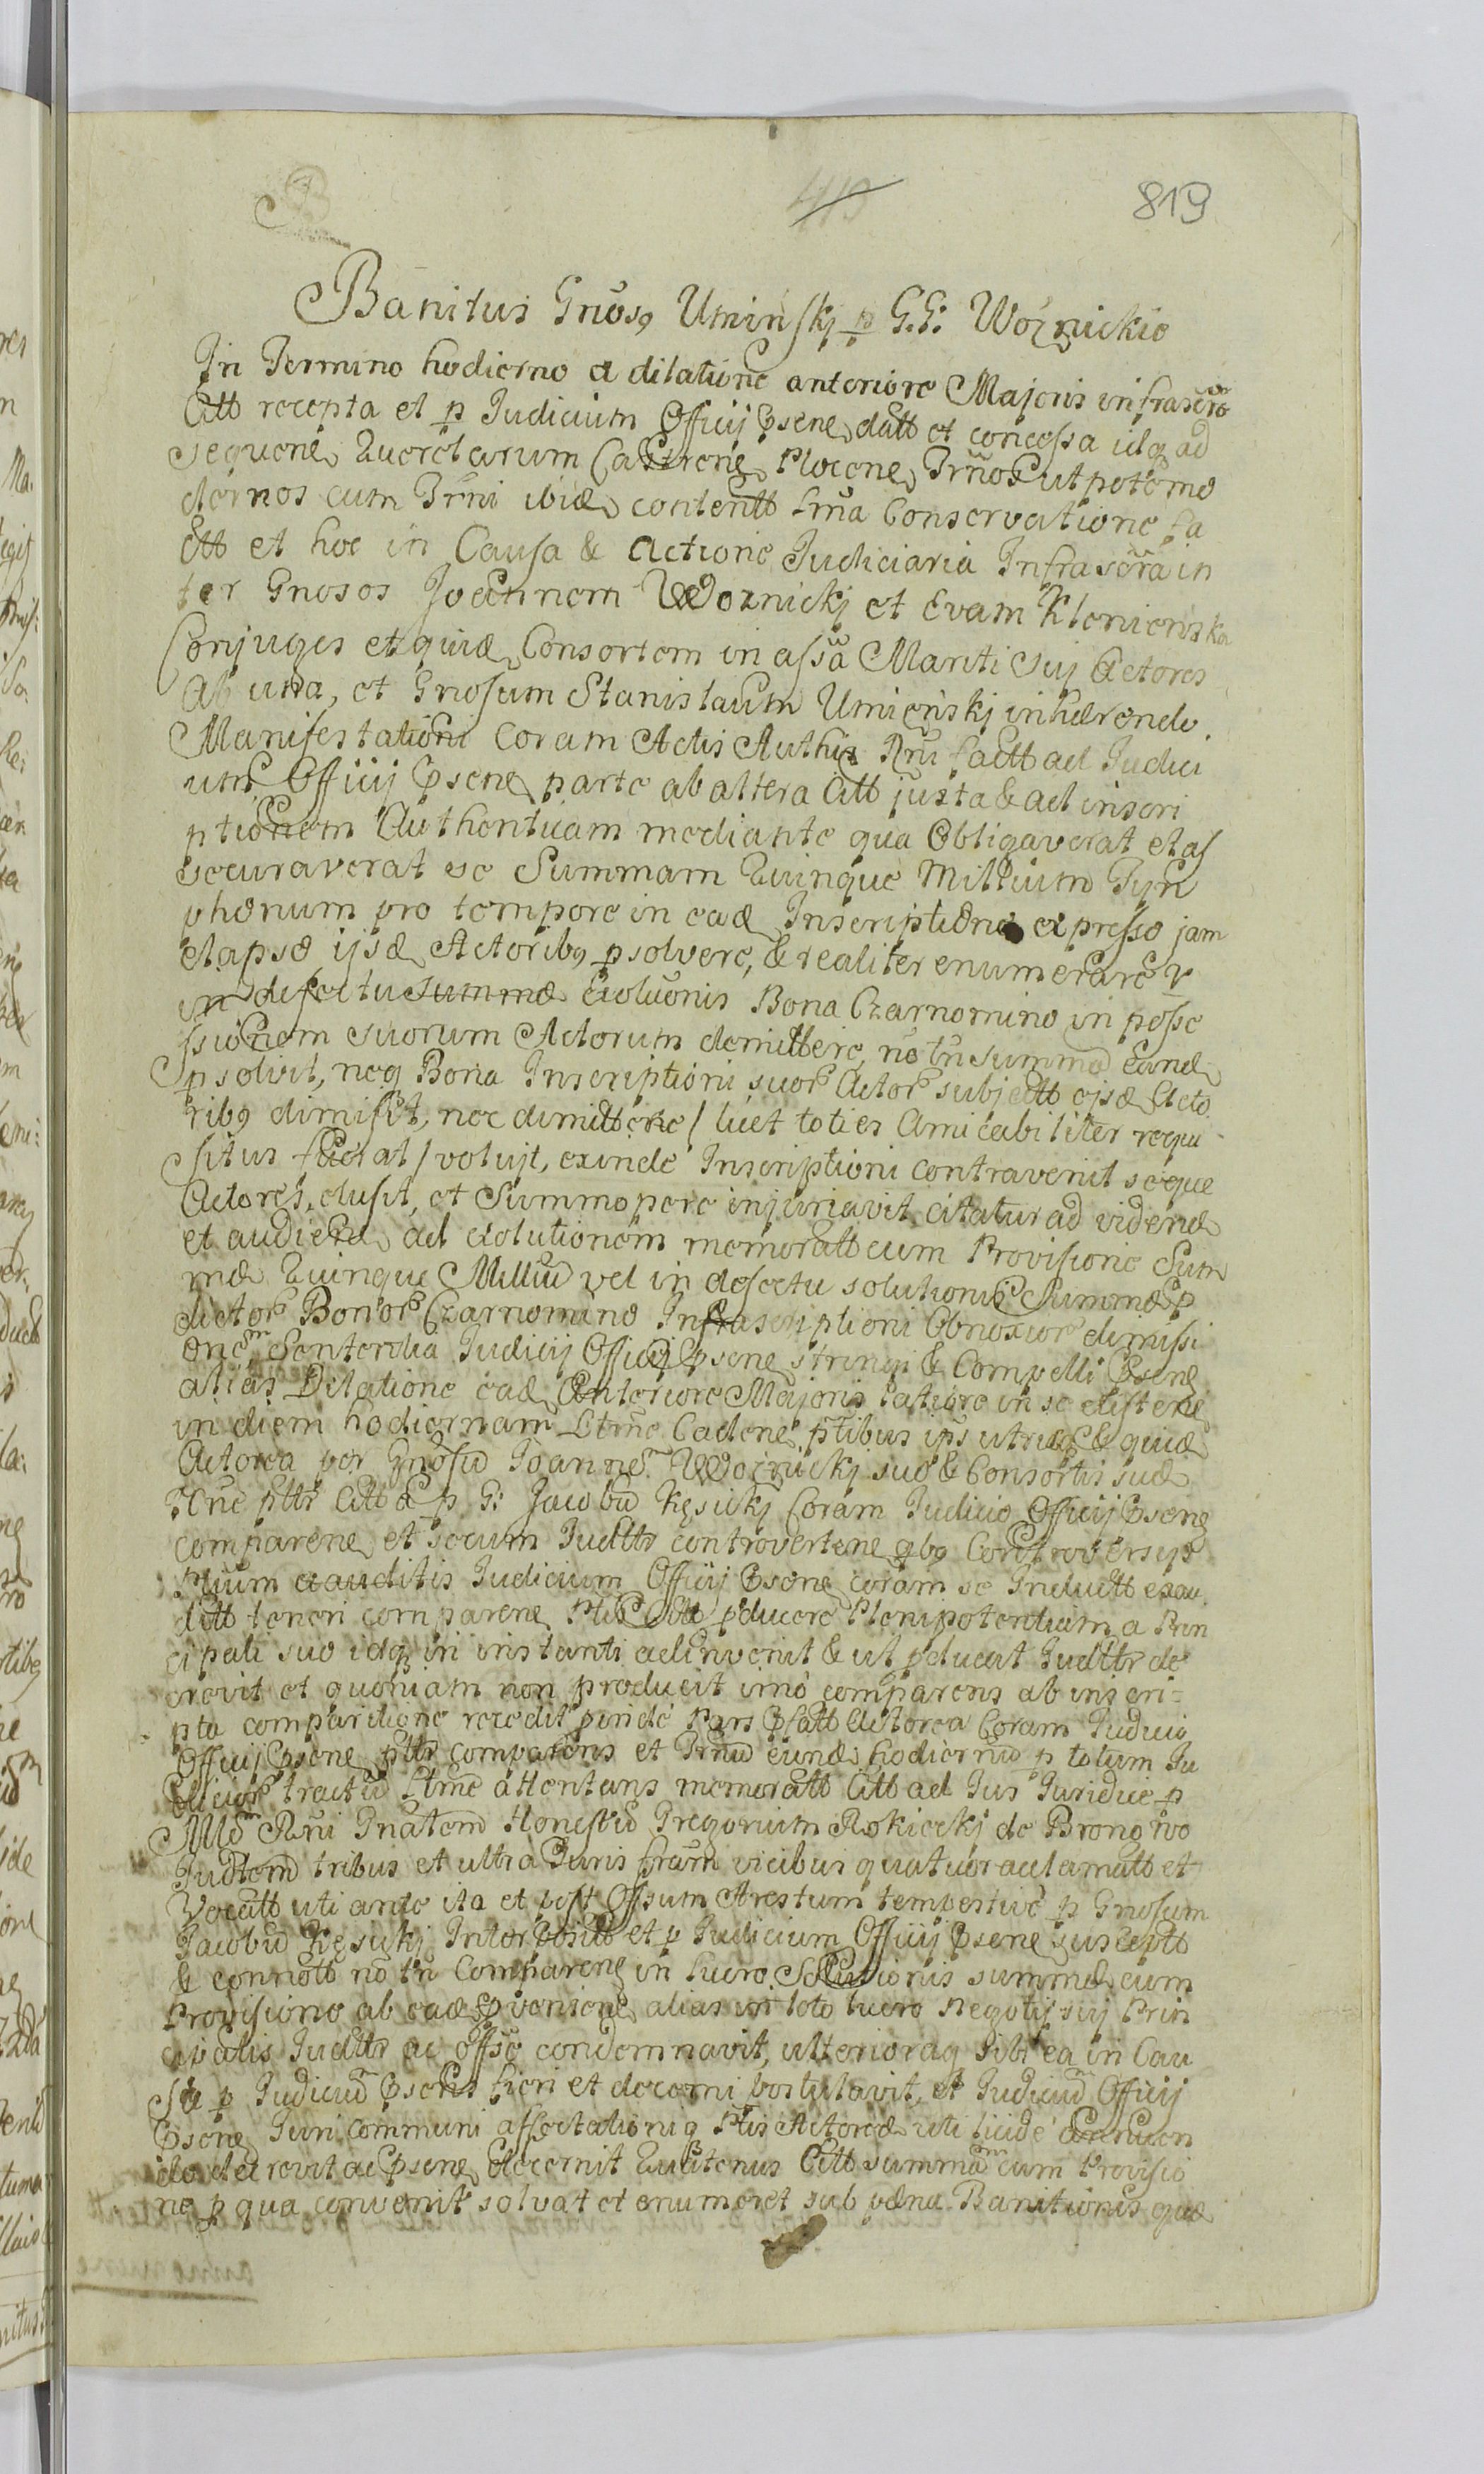 819
Banitus Gnosq Uminskj p G.G: Woznickie
In Termino hodierno a dilatione anteriore Majoris infrascro
Citt recepta et p Judicium Officij Psene datt et concessa idq ad
sequene Querelarum Castrene Plocene Trnos ut pote mo
dernos cum Trni ibid contentt Lrma Conservatione fa
ctt et hoc in Causa & Actione Judiciaria Infrascra in
ter Gnosos Joannem Woznickj et Evam Kleniewska
Conjuges et quid Consortem in assa Mariti sui Actores
Ab una, et Gnosum Stanislaum Uminskj inhærendo
Manifestationi Coram Actis Authis Rni factt ad Judici
um Officij Psene parte ab altera Citt juxta & ad inscri
ptionem Authenticam mediante qua Obligaverat et as
securaverat se Summam Quinque Millium Tyn
phonum pro tempore in ead Inscriptione expresso jam
elapso ijsd Actoribq psolvere, & realiter enumerare v
in defectu summæ Exolutionis Bona Czarnomino in posse
ssionem suorum Actorum demittere, no tn summa eand
psolvit, neq Bona Inscriptioni suor Actor subjectt ejsd Acto
ribq dimisit, nec dimittere / licet toties Amicabiliter requi
situs fuerat / voluit, exinde Inscriptioni contravenit seque
Actores, elusit, et Summopere injuriavit, citatur ad vidend
et audiend ad exolutionem memoratt cum Provisione Sum
mæ Quinque Milliu vel in defectu solutionis Summæ p
dictor Bonor Czarnomino Infrascriptioni Obnoxior dimissi
one Sententia Judicij Officij Psene stringi & Compelli Psene
alias Dilatione ead Anteriore Majoris ratione in se elistene
in diem hodiernam Ltme Cadene ptibus ips utrisq & quid
Actorea per Gnosu Joanne Woznickj suo & Consortis suæ
Citt a p G: Jacobu Kęsickj Coram Judicio Officij Psene
comparene et secum Judttr controvertene qbq Controversijs
Ptium exauditis Judicium Officij Psene coram se Inductt exau
ditt teneri comparene Ptis Citt pducere Plenipotentiam a Prin
cipali suo idq in instanti adinvenit & ut pducat Judttr de
crevit et quoniam non producit imo comparens ab inscri=
pta comparitione recedit proinde Pars Pfatt Actorea Coram Judicio
Officij Psene pttr comparens et Trnu eund hodiernu p totum Ju
dicior tractu Ltme attentans memoratt Citt ad Jus Juridice p
Mm Rni Gnalem Honestu Gregorium Rokickj de Brongiwo
Judttem tribus et ultra Juris fram vicibus quatuor acclamatt et
Vocatt uti ante ita et post Offsum Arestum tempestive p Gnosum
Jacobu Kęsickj Interpositt et p Judicium Officij Psene susceptt
& connott no tn Comparene in lucro Solutionis summæ cum
Provisione ab ead pveniene alias in toto lucro Negotij sui Prin
cipalis Judttr ac Offse condemnavit, ulterioraq sibi ea in Cau
sa p Judiciu Psens fieri et decerni postulavit, et Judiciu Officij
Psene Juri communi affectationiq Ptis Actoreæ uti licide
do decrevit ac Psene decernit Quatenus Citt summa cum Provisio
ne p qua convenit solvat et enumeret sub pæna Banitionis quæ